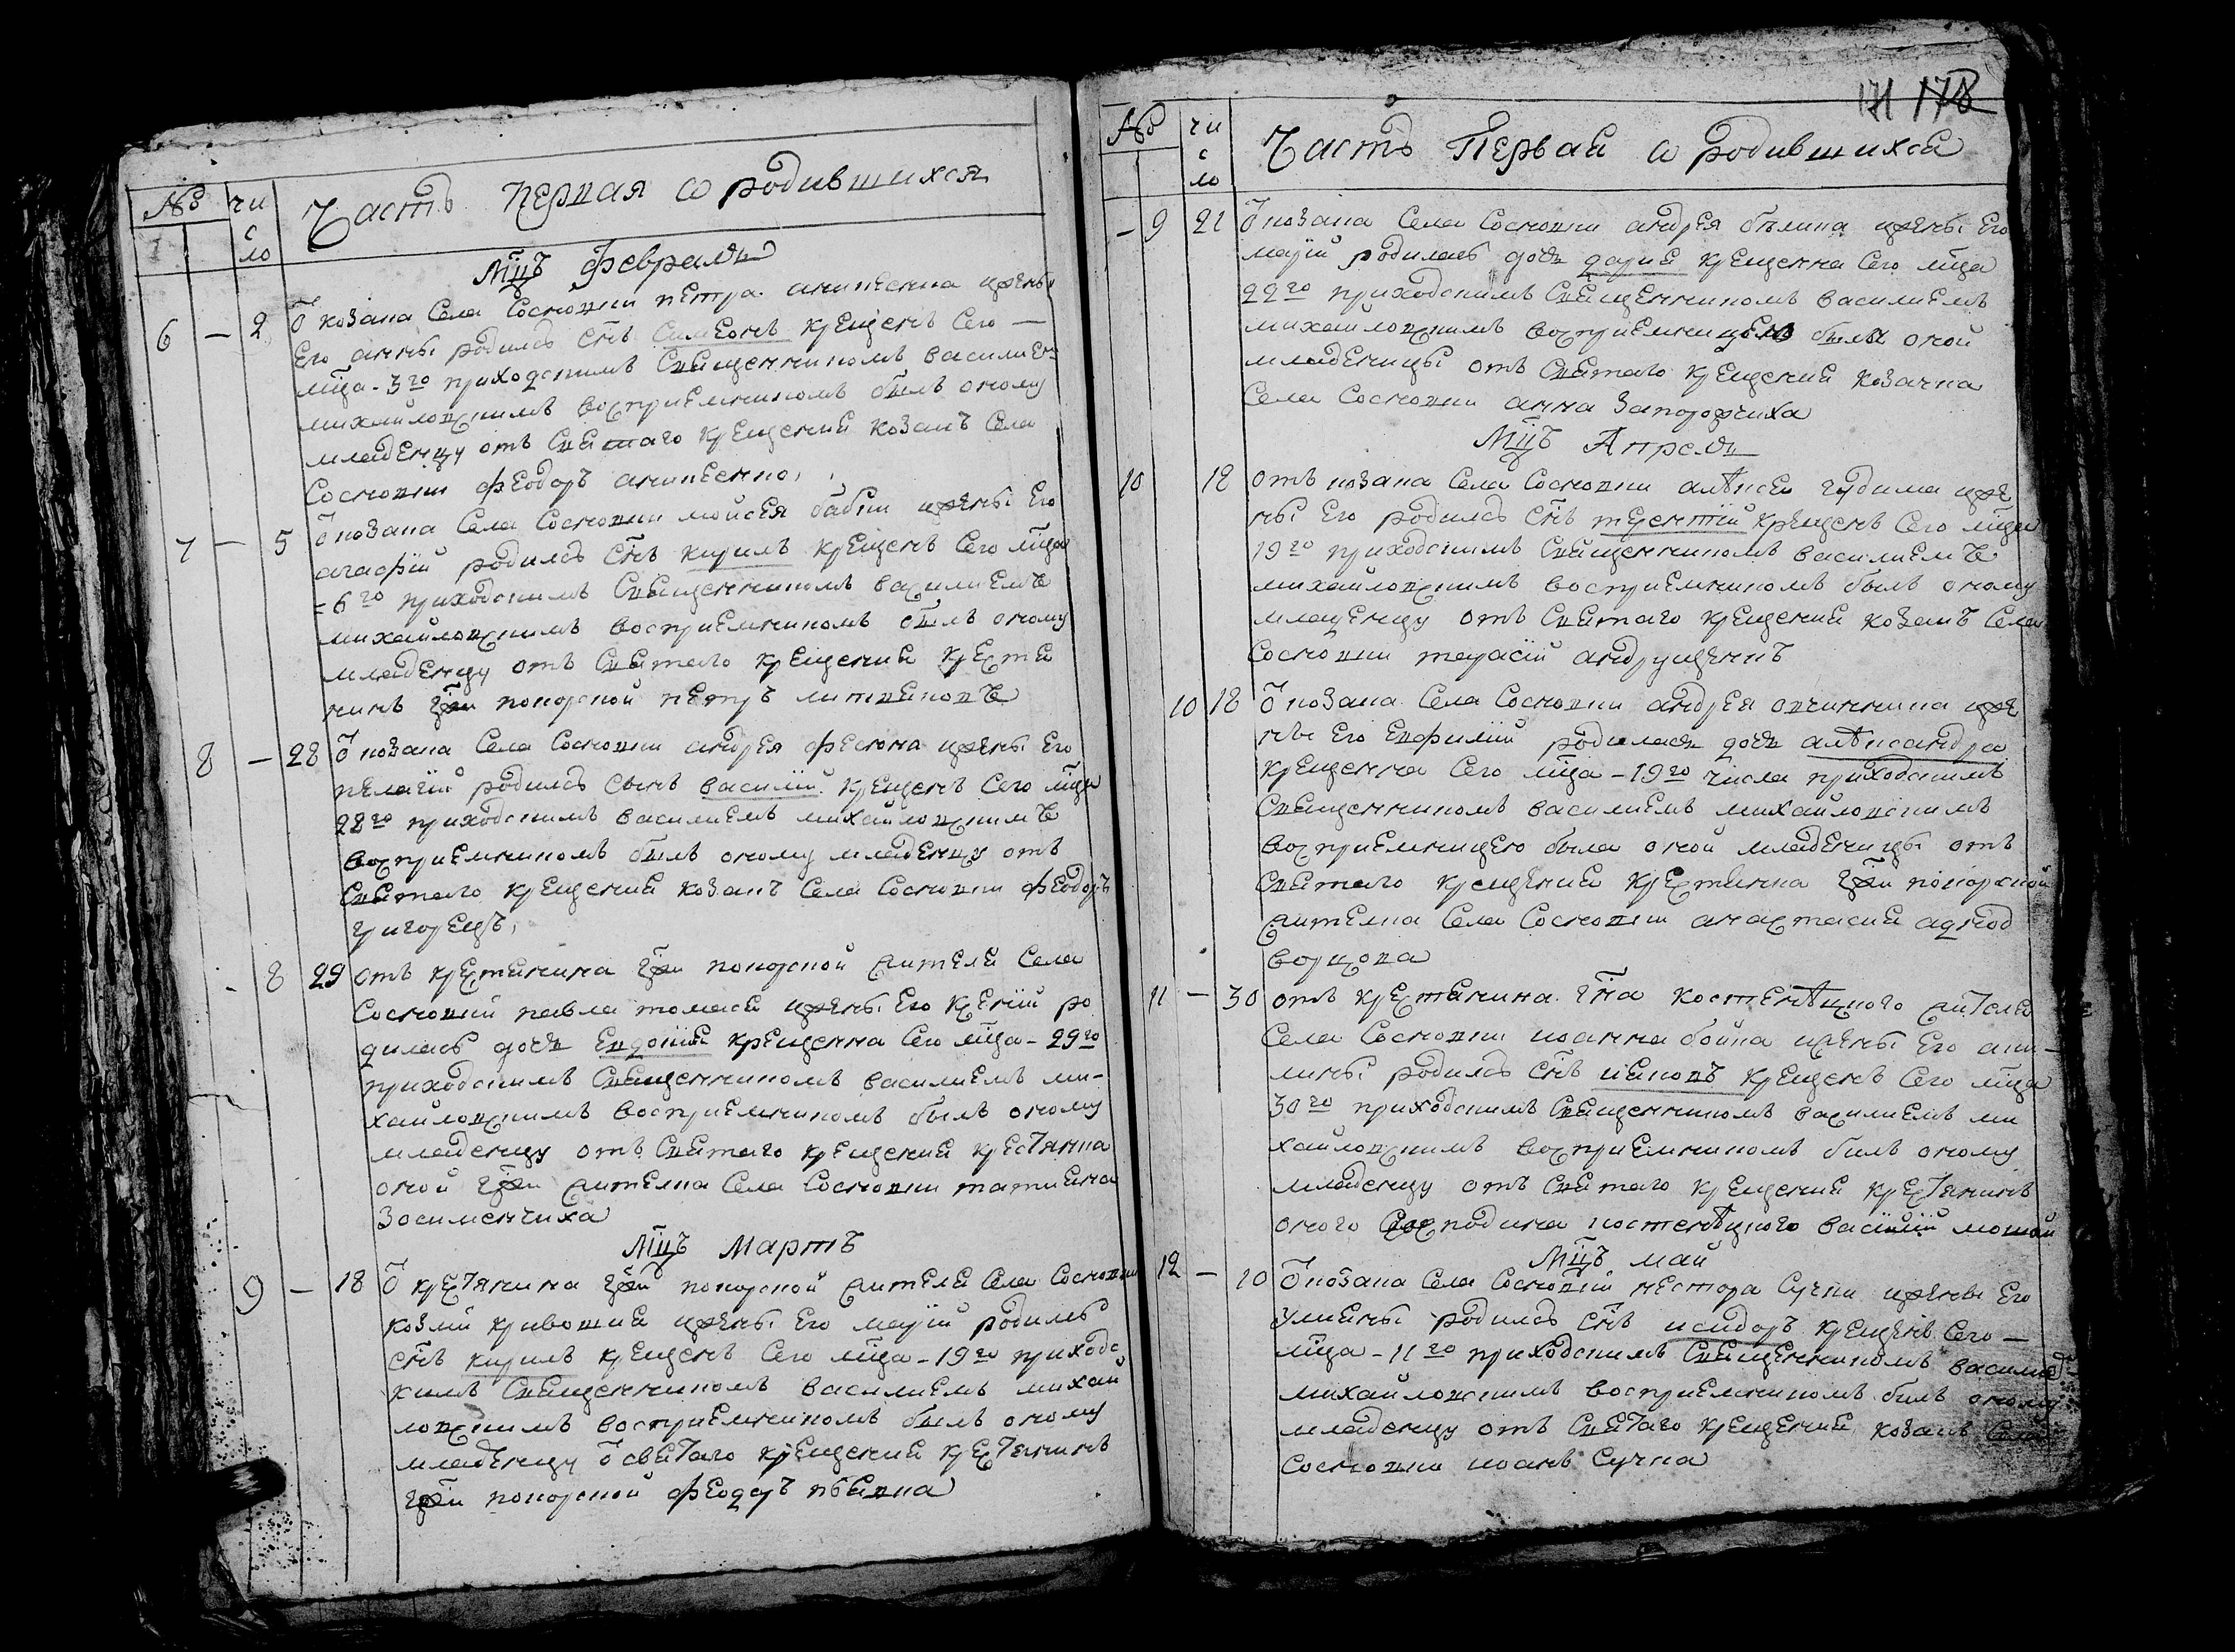 № чи
с
ло
Часть первая ѡ родившихся
Мцъ февраль
6 — 2 Ѿ козака Села Сосновки петра аникеенка жены
Его анны родилсь снъ Симеонъ крещенъ Сего —
мца - 3го приходскимъ Священникомъ василием
михайловскимъ восприемникомъ былъ оному
младенцу отъ Святаго крещения козакъ Села
Сосновки феодоръ аникеенко,
7 — 5 Ѿ козака Села Сосновки мойсея бабки жены Его
агафiи родилсь снъ кирилъ крещенъ Сего мца
- 6го приходскимъ Священникомъ василиемъ
михайловскимъ восприемникомъ былъ оному
младенцу отъ Святаго крещения крестя
нинъ гжи покорской петръ литвяковъ
8 — 28 Ѿ козака Села Сосновки андрея фесюка жены Его
пелагiи родилсь сынъ василiй крещенъ Сего мца
28го приходскимъ василиемъ михайловскимъ
восприемникомъ былъ оному младенцу отъ
Святаго крещения козакъ Села Сосновки феодоръ
григорецъ,
8 29 отъ крестянина гжи покорской жителя Села
Сосновкй павла томаса жены Его ксенiи ро
дилась дочь Евдокiя крещенна Сего мца - 29го
приходскимъ Священникомъ василиемъ ми-
хайловскимъ восприемникомъ былъ оному
младенцу отъ Святаго крещения крестянка
оной гжи жителка Села Сосновки татияна
Зосименчиха
Мцъ Мартъ
9 — 18 Ѿ крестянина гжи покорской жителя Села Сосновки
козмы кривошия жены Его марiи родилсь
снъ кирилъ крещенъ Сего мца - 19го приходс
кимъ Священникомъ василиемъ михай
ловскимъ восприемникомъ былъ оному
младенцу ѿ святаго крещения крестянинъ
гжи покорской феодоръ пьявка
171 178
№ чи
с
ло
Часть Первая ѡ родившихся
- 9 21 Ѿ козака Села Сосновки андрея бѣлика жены Его
марiи родилась дочь дария крещенна Сего мца
22го приходскимъ Священникомъ василиемъ
михайловскимъ восприемницею была оной
младеницы отъ Святаго крещения козачка
Села Сосновки анна Запорожчиха
Мцъ Апрель
10 18 отъ козака Села Сосновки алѣксея гудима же
ны Его родилсь снъ терентiй крещенъ Сего мца
19го приходскимъ Священникомъ василиемъ
михайловскимъ восприемникомъ былъ оному
младенцу отъ Святаго крещения козакъ Села
Сосновки тарасiй андрущенкъ
10 18 Ѿ козака Села Сосновки андрея овчинника же
ны Его Евфимiи родилась дочь алѣксандра
крещенна Сего мца - 19го числа приходскимъ
Священникомъ василиемъ михайловскимъ
восприемницею была оной младеницы отъ
Святаго крещения крестянка гжи покорской
жителка Села Сосновки анастасия аднод
ворцова
11 — 30 отъ крестянина гна костенѣцкого жителя
Села Сосновки иоанна бойка жены Его аки-
лины родилсь снъ ияковъ крещенъ Сего мца
30го приходскимъ Священникомъ василиемъ ми
хайловскимъ восприемникомъ билъ оному
младенцу отъ Святаго крещения крестянинъ
оного Господина костенѣцкого василiй мошай
Мцъ май
12 — 10 Ѿ козака Села Сосновкй нестора Сучки жены Его
Улияны родилсь снъ исидоръ крещенъ Сего —
мца - 11го приходскимъ Священникомъ василие
михайловскимъ восприемникомъ билъ оному
младенцу отъ Святаго крещения козакъ Села
Сосновки иоанъ Сучка